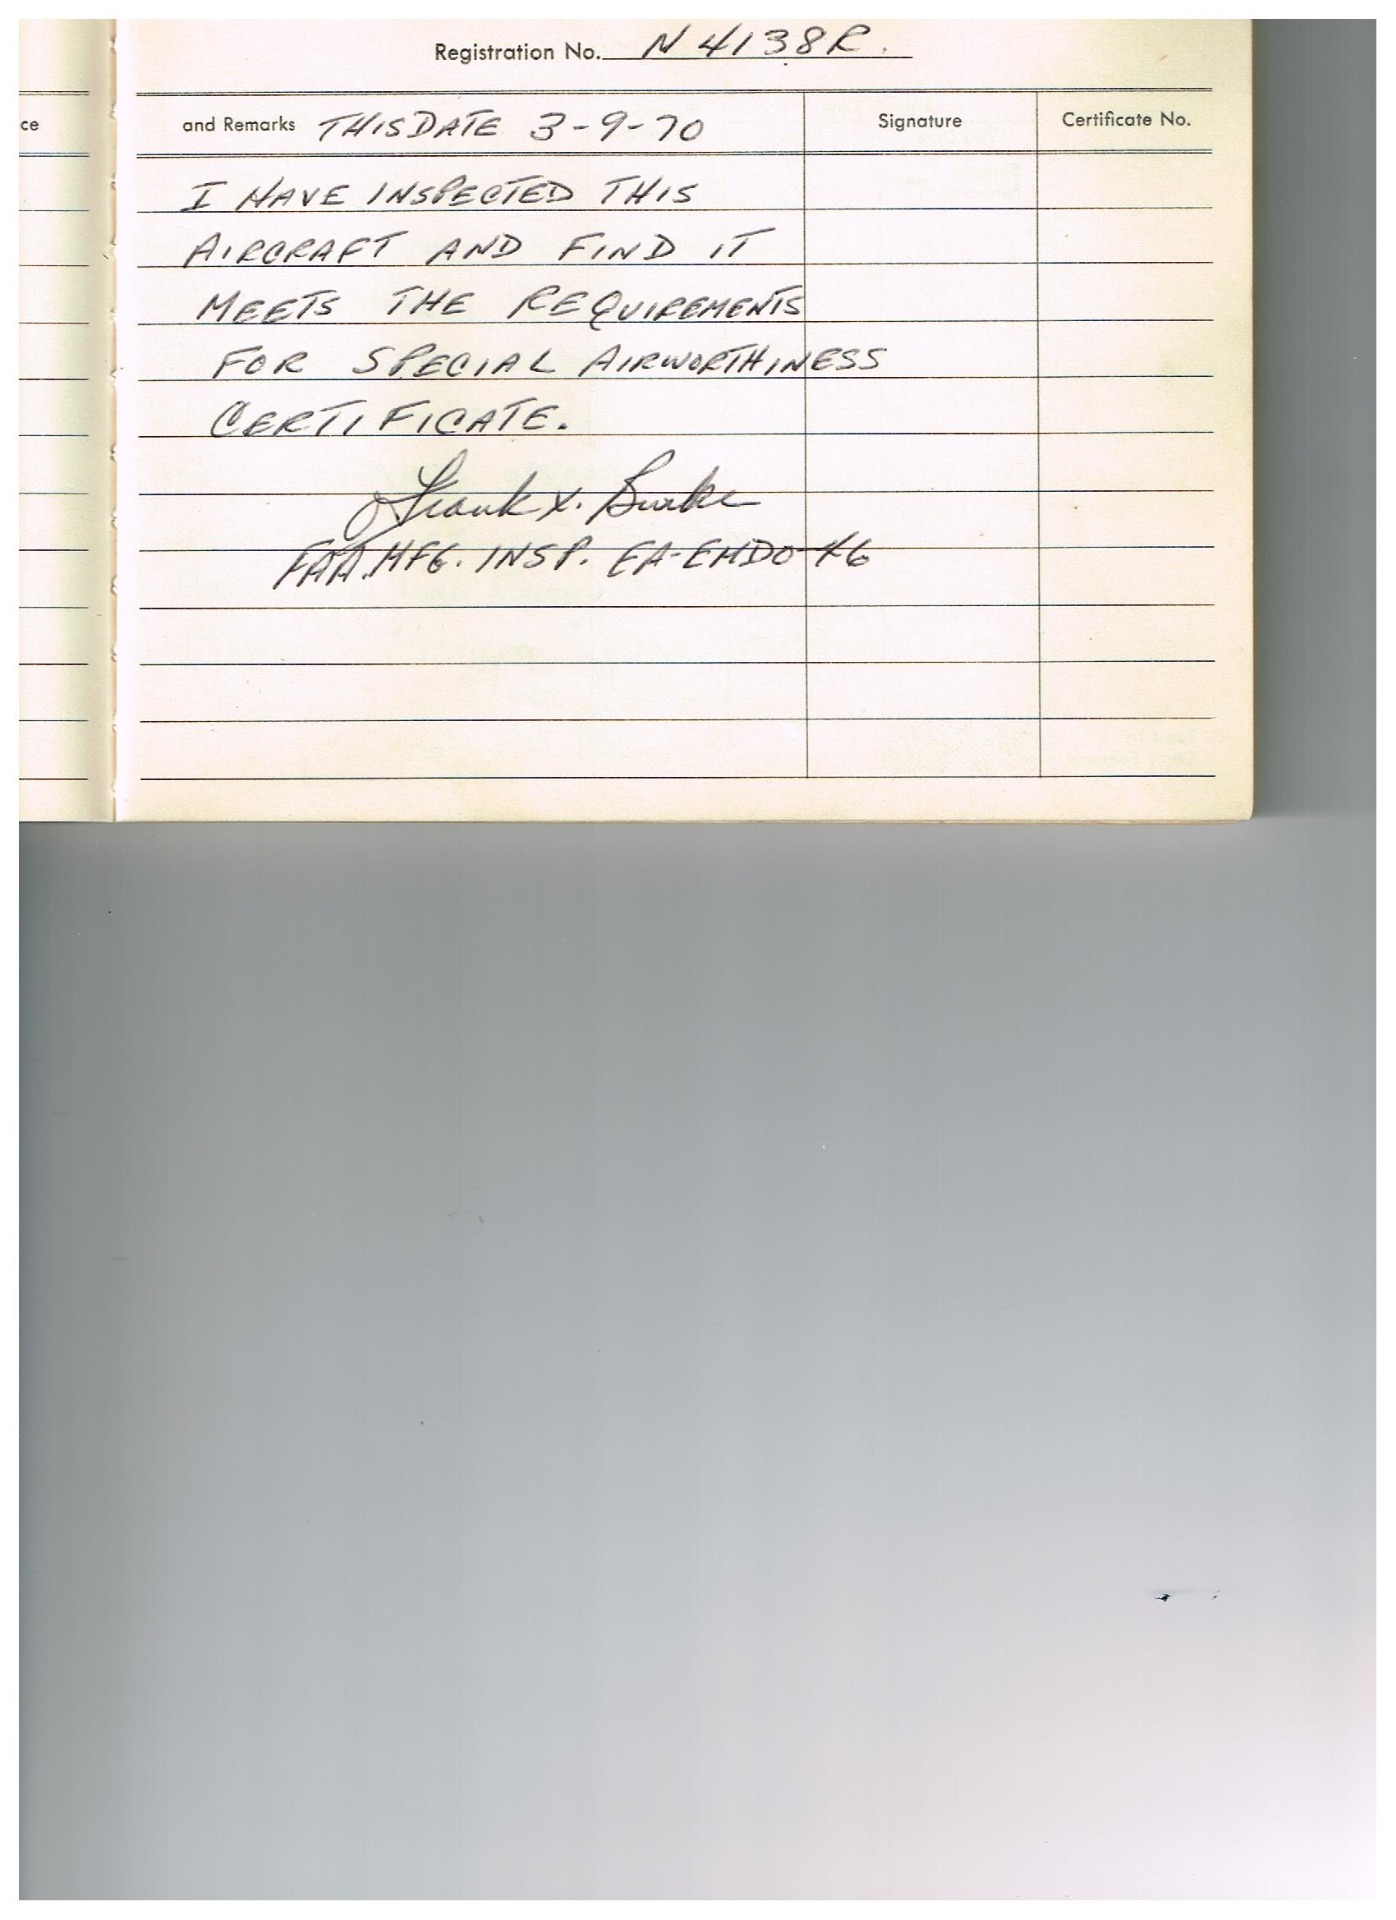 Registration No. N4138R.
ce
and Remarks THIS DATE 3-9-70 Signature Certificate No.
I HAVE INSPECTED THIS
AIRCRAFT AND FIND IT
MEETS THE REQUIREMENTS
FOR SPECIAL AIRWORTHINESS
CERTIFICATE.
Frank X. Burke
FAA. MFG. INSP. EA-EMDO-46